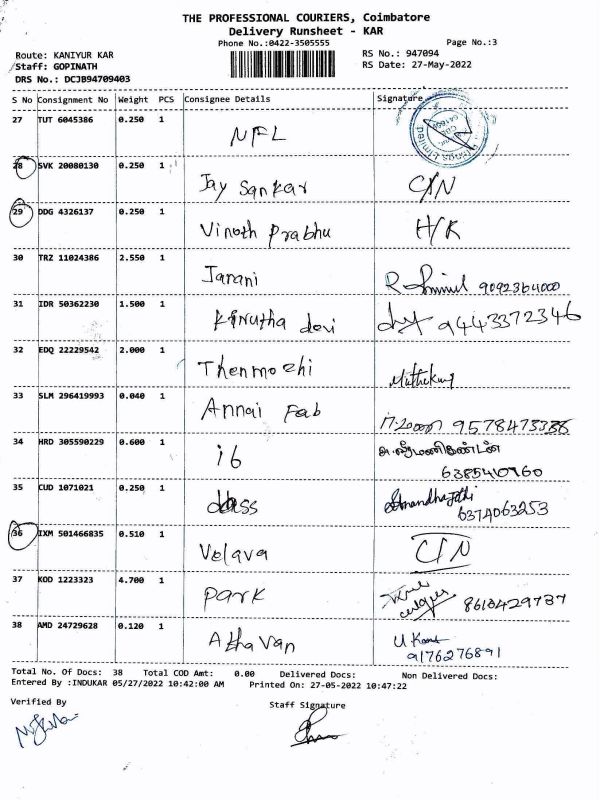 THE PROFESSIONAL COURIERS, Coimbatore
Delivery Runsheet - KAR
Phone No.:0422-3505555 Page No.:3
Route: KANIYUR KAR RS No.: 947094
Staff: GOPINATH RS Date: 27-May-2022
DRS No.: DCJB94709403
S No Consignment No Weight PCS Consignee Details Signature
27 TUT 6045386 0.250 1 NFL
28 SVK 20080130 0.250 1 Jay Sankar C/N
29 DDG 4326137 0.250 1 Vinoth Prabhu H/K
30 TRZ 11024386 2.550 1 Janani 9092364000
31 IDR 50362230 1.500 1 Kirutha devi 9443372346
32 EDQ 22229542 2.000 1 Thenmozhi Muthukumar
33 SLM 296419993 0.040 1 Annai Fab
34 HRD 305590229 0.600 1 i6
35 CUD 1071021 0.250 1 dass 6374063253
36 IXM 501466835 0.510 1 Velava C/N
37 KOD 1223323 4.700 1 park 8610429737
38 AMD 24729628 0.120 1 Athavan 9176276891
Total No. Of Docs: 38 Total COD Amt: 0.00 Delivered Docs: Non Delivered Docs:
Entered By :INDUKAR 05/27/2022 10:42:00 AM Printed On: 27-05-2022 10:47:22
Verified By Staff Signature